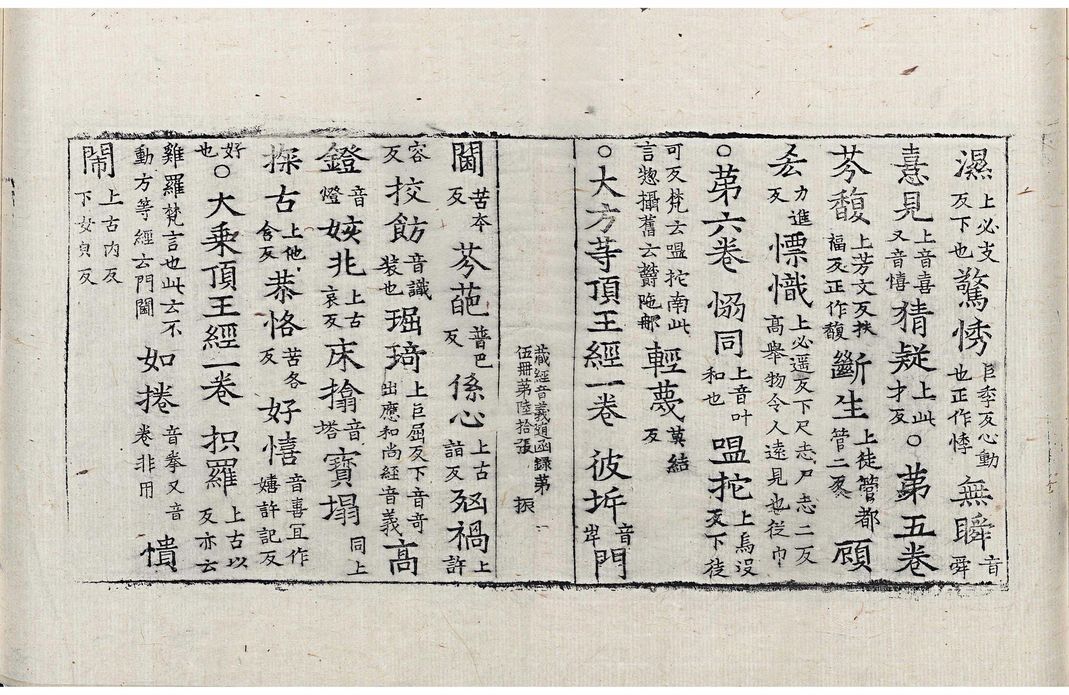 濕上必支反下也驚悸巨季反心動也正作悸無瞬音舜
憙見上音喜又音憘猜疑上此才反○苐五卷
芩馥上芳文反扶福反正作馥斷生上徒管都管二反頋
㐫力進反慓懺上必遥反下尺志尸志二反高舉物令人遠見也從巾
○苐六卷㥘同上音叶和也㬈拕上烏沒反下徒
可反梵云㬈拕南此言惣攝舊云欝陁郍輕蔑莫結反
○大方等頂王經一卷彼㘸音岸門
藏經音義随函録第伍冊第陸拾張 振
閫苦夲反芩葩普巴反係心上古詣反𣧑禍上許
容反挍飭音識装也琨琦上巨屈反下音奇出應和尚經音義髙
鐙音燈姟兆上古哀反床㩉音塔寳塌同上
探古上他含反恭恪苦各反好憘音喜冝作嬉許記反
好也○大乗頂王經一卷抧羅上古以反亦云
雞羅梵言也此云不動方等經云門閫如捲音拳又音卷非用憒
閙上古内反下女皃反